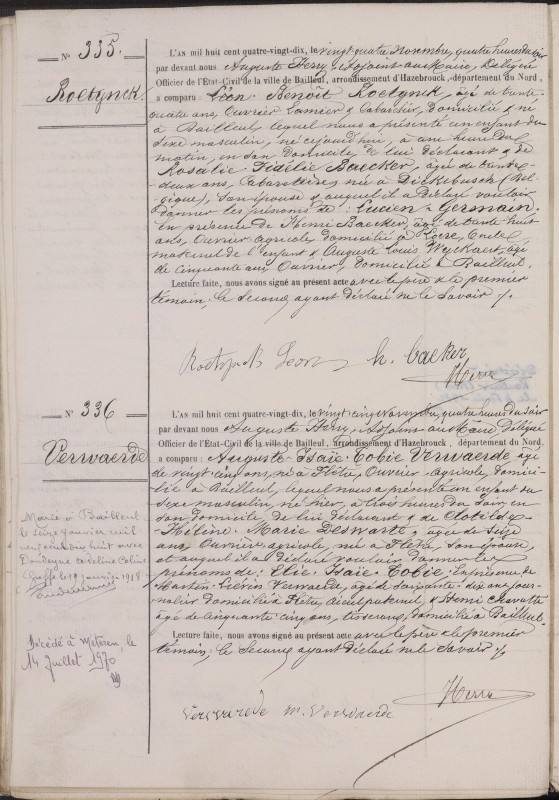 N° 335.
Roetynck.
L'AN mil huit cent quatre-vingt-dix, le vingt quatre Novembre, quatre heures du soir
par devant nous Auguste Hezy, Adjoint au Maire, Délégué
Officier de l'État-Civil de la ville de Bailleul, arrondissement d'Hazebrouck, département du Nord,
a comparu Léon Benoît Roetynck, âgé de trente
quatre ans, Ouvrier Lamier & Cabaretier, domicilié & né
à Bailleul, lequel nous a présenté un enfant du
sexe masculin, né cejourd'hui, à une heure du
matin, en son domicile, de lui déclarant & de
Rosalie Fidélie Baecker, âgée de trente-
deux ans, Cabaretière, née à Dickebusch (Bel-
gique), Son épouse & auquel il a déclaré vouloir
donner les prénoms de: Lucien-Germain.
En présence de Henri Baecker, âgé de trente huit
ans, Ouvrier agricole, domicilié à Locre, Oncle
maternel de l'enfant & Auguste Louis âgé
de cinquante ans, Ouvrier, domicilié à Bailleul.
Lecture faite, nous avons signé au présent acte avec le père & le premier
témoin; le Second ayant déclaré ne le Savoir ./.
Roetynck Leon h. baeker
N° 336
Verwaerde
L'AN mil huit cent quatre-vingt-dix, le vingt cinq Novembre, quatre heures du soir
par devant nous Auguste Hezy, Adjoint au Maire Délégué
Officier de l'État-Civil de la ville de Bailleul, arrondissement d'Hazebrouck, département du Nord
a comparu: Auguste-Isaïe-Tobie Verwaerde âgé
de vingt cinq ans, né à Flêtre, Ouvrier agricole, domici-
lié à Bailleul, lequel nous a présenté un enfant du
sexe masculin, né hier, à trois heures du soir en
son domicile, de lui déclarant & de Clotilde-
Héline-Marie Deswarte, âgée de Seize
ans, Ouvrière agricole, née à Flêtre, Son épouse
et auquel il a déclaré vouloir donner les
prénoms de: Elie-Isaïe-Tobie. En présence de
Martin-Liévin Verwaerde, âgé de soixante-dix ans, jour-
nalier domicilié à Flêtre, aïeul paternel & Henri
âgé de cinquante cinq ans, tisserand, domicilié à Bailleul.
Lecture faite, nous avons signé au présent acte avec le père & le premier
témoin; le Second ayant déclaré ne le Savoir ./.
Verwaerde m. Verwaerde
Marié à Bailleul
le seize janvier mil
neuf cent dix huit avec
Caroline Celine
le 19 janvier 1918
Décédé à Meteren, le
14 Juillet 1970